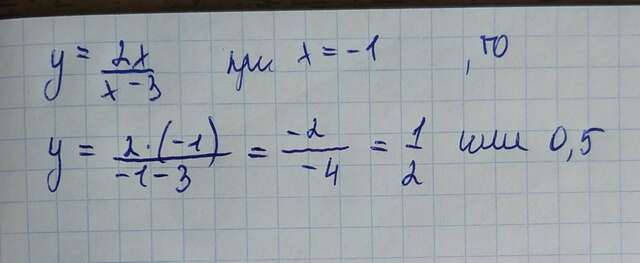 y = 2x / x - 3 при x = -1 , то
y = 2·(-1) / -1-3 = -2 / -4 = 1/2 или 0,5